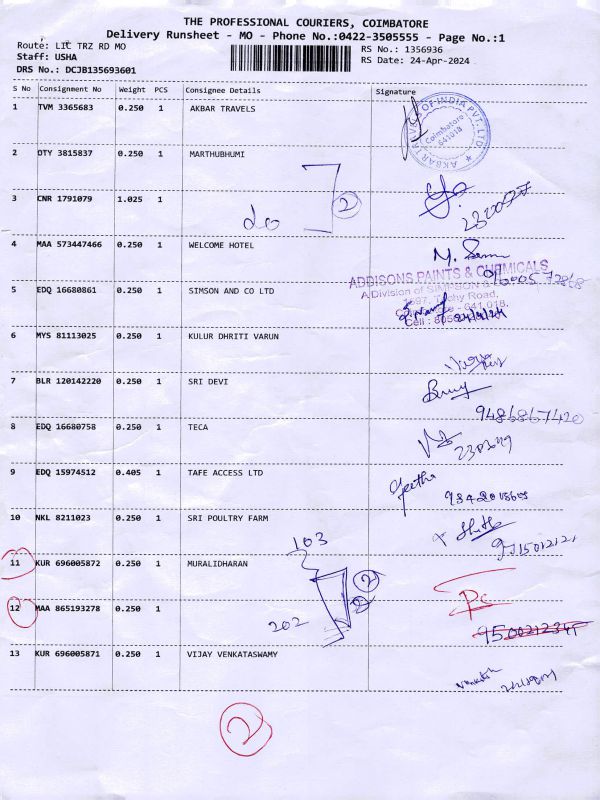 THE PROFESSIONAL COURIERS, COIMBATORE
Delivery Runsheet - MO - Phone No.:0422-3505555 - Page No.:1
Route: LIC TRZ RD MO
RS No.: 1356936
Staff: USHA
RS Date: 24-Apr-2024
DRS No.: DCJB135693601
S No Consignment No Weight PCS Consignee Details Signature
1 TVM 3365683 0.250 1 AKBAR TRAVELS
AKBAR TRAVELS OF INDIA PVT. LTD.
Coimbatore
641018
2 OTY 3815837 0.250 1 MARTHUBHUMI
3 CNR 1791079 1.025 1
do 2
4 MAA 573447466 0.250 1 WELCOME HOTEL
ADDISONS PAINTS & CHEMICALS
A Division of SIMPSON &
5 EDQ 16680861 0.250 1 SIMSON AND CO LTD
1697, Trichy Road,
641 018.
24/4/24
6 MYS 81113025 0.250 1 KULUR DHRITI VARUN
7 BLR 120142220 0.250 1 SRI DEVI
9486867420
8 EDQ 16680758 0.250 1 TECA
9 EDQ 15974512 0.405 1 TAFE ACCESS LTD
Geetha
10 NKL 8211023 0.250 1 SRI POULTRY FARM
103
11 KUR 696005872 0.250 1 MURALIDHARAN
2
12 MAA 865193278 0.250 1
202
13 KUR 696005871 0.250 1 VIJAY VENKATASWAMY
2